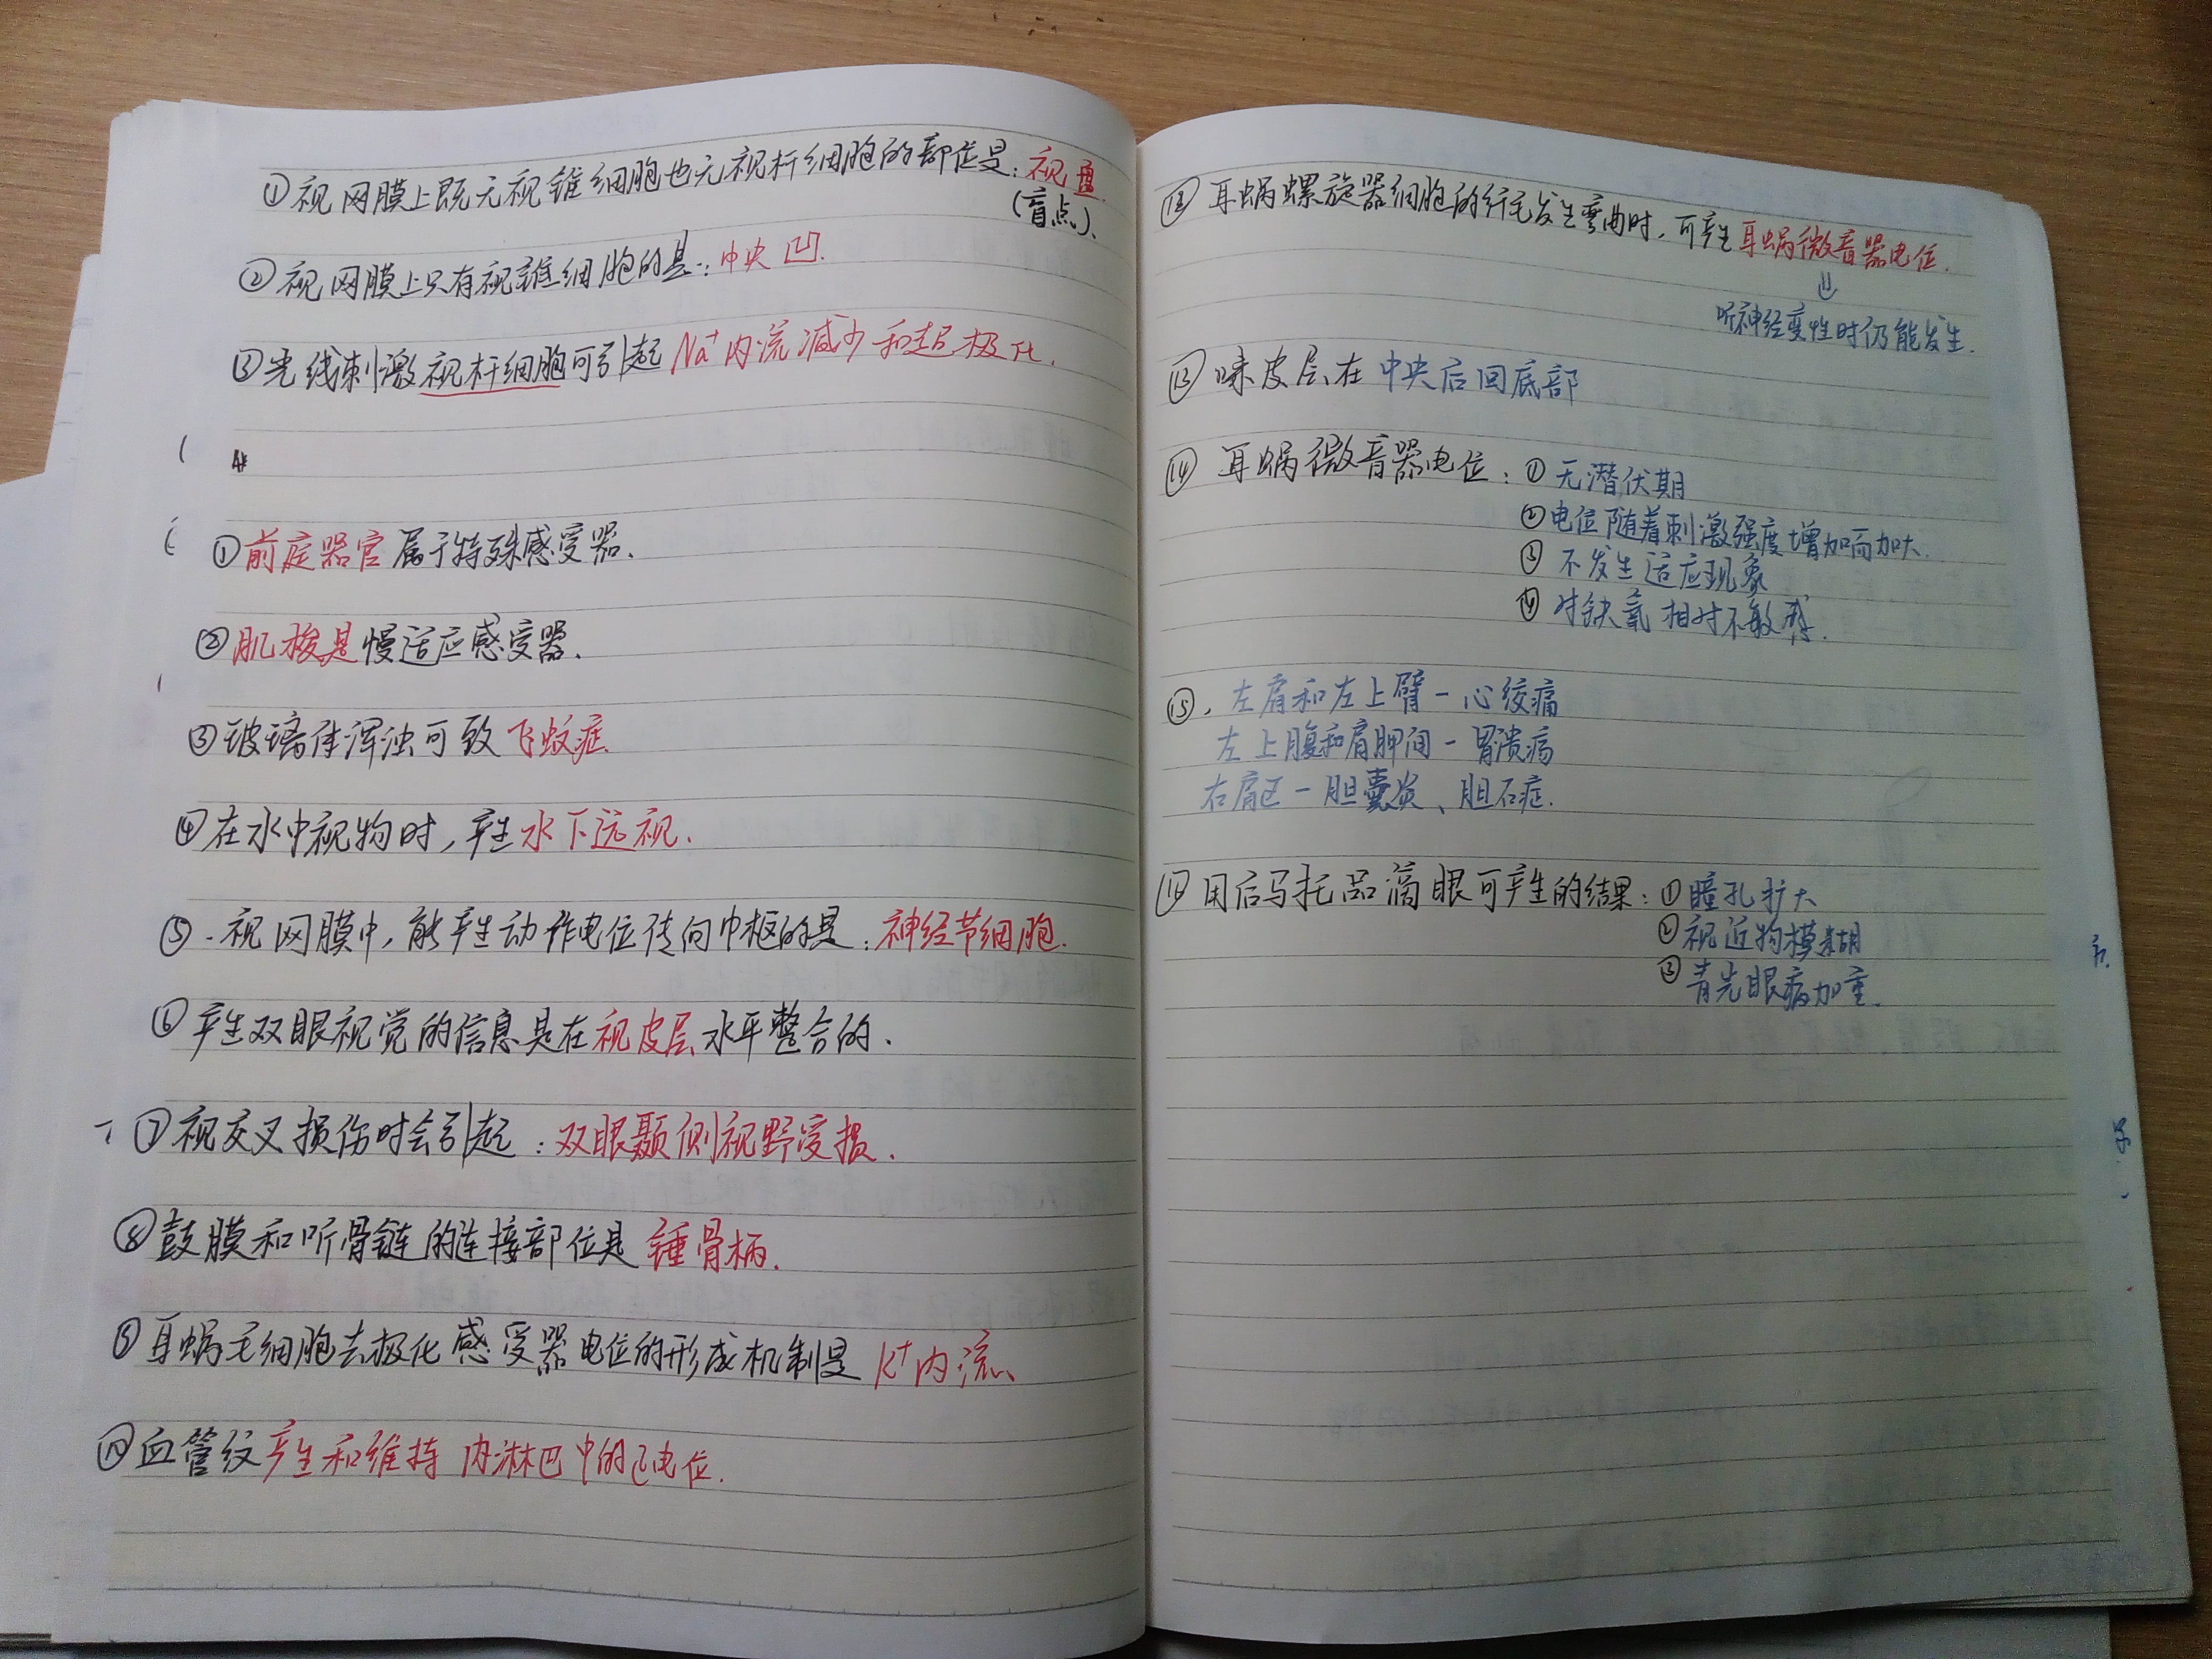 ①视网膜上既无视锥细胞也无视杆细胞的部位是:视盘
(盲点).
②视网膜上只有视锥细胞的是:中央凹.
③光线刺激视杆细胞可引起Na⁺内流减少和超极化.
①前庭器官属于特殊感受器.
②肌梭是慢适应感受器.
③玻璃体浑浊可致飞蚊症
④在水中视物时,产生水下远视.
⑤.视网膜中,能产生动作电位传向中枢的是:神经节细胞.
⑥产生双眼视觉的信息是在视皮层水平整合的.
⑦视交叉损伤时会引起:双眼颞侧视野受损.
⑧鼓膜和听骨链的连接部位是 锤骨柄.
⑨耳蜗毛细胞去极化感受器电位的形成机制是 K⁺内流.
⑩血管纹产生和维持 内淋巴中的正电位.
⑫耳蜗螺旋器细胞的纤毛发生弯曲时,可产生耳蜗微音器电位.
⇓
听神经变性时仍能发生.
⑬味皮层在 中央后回底部
⑭耳蜗微音器电位:①无潜伏期
②电位随着刺激强度增加而加大.
③不发生适应现象
④对缺氧相对不敏感.
⑮.左肩和左上臂-心绞痛
左上腹和肩胛间-胃溃疡
右肩区-胆囊炎、胆石症.
用后马托品滴眼可产生的结果:①瞳孔扩大
②视近物模糊
③青光眼病加重.